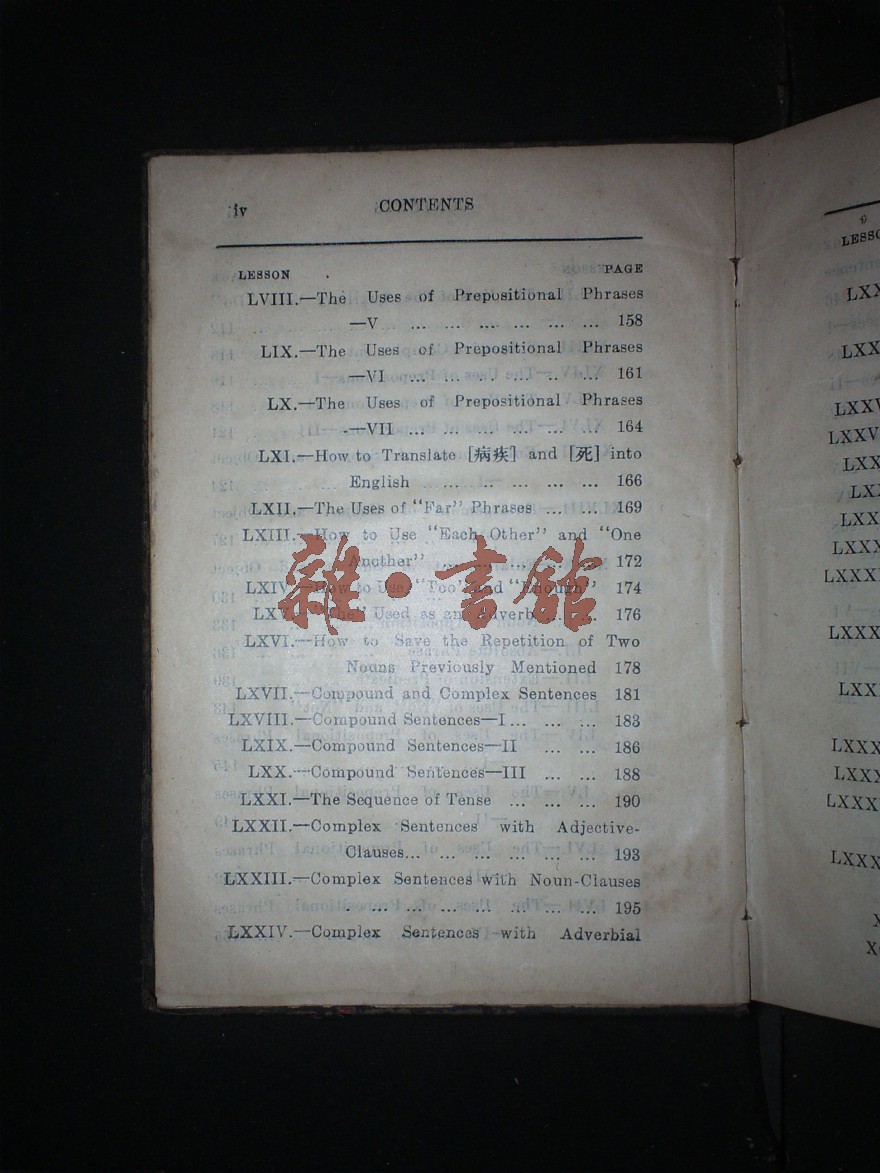 iv CONTENTS
LESSON PAGE
LVIII.—The Uses of Prepositional Phrases
—V ... ... ... ... ... ... 158
LIX.—The Uses of Prepositional Phrases
—VI ... ... ... ... ... ... 161
LX.—The Uses of Prepositional Phrases
—VII ... ... ... ... ... ... 164
LXI.—How to Translate [病疾] and [死] into
English ... ... ... ... ... 166
LXII.—The Uses of "Far" Phrases ... ... 169
LXIII.—How to Use "Each Other" and "One
Another" ... ... ... ... ... 172
LXIV.—How to Use "Too" and "Enough" 174
LXV.—"The" Used as an Adverb ... ... 176
LXVI.—How to Save the Repetition of Two
Nouns Previously Mentioned 178
LXVII.—Compound and Complex Sentences 181
LXVIII.—Compound Sentences—I ... ... ... 183
LXIX.—Compound Sentences—II ... ... 186
LXX.—Compound Sentences—III ... ... 188
LXXI.—The Sequence of Tense ... ... ... 190
LXXII.—Complex Sentences with Adjective-
Clauses... ... ... ... ... ... ... 193
LXXIII.—Complex Sentences with Noun-Clauses
... ... ... ... ... ... ... 195
LXXIV.—Complex Sentences with Adverbial
雜·書館